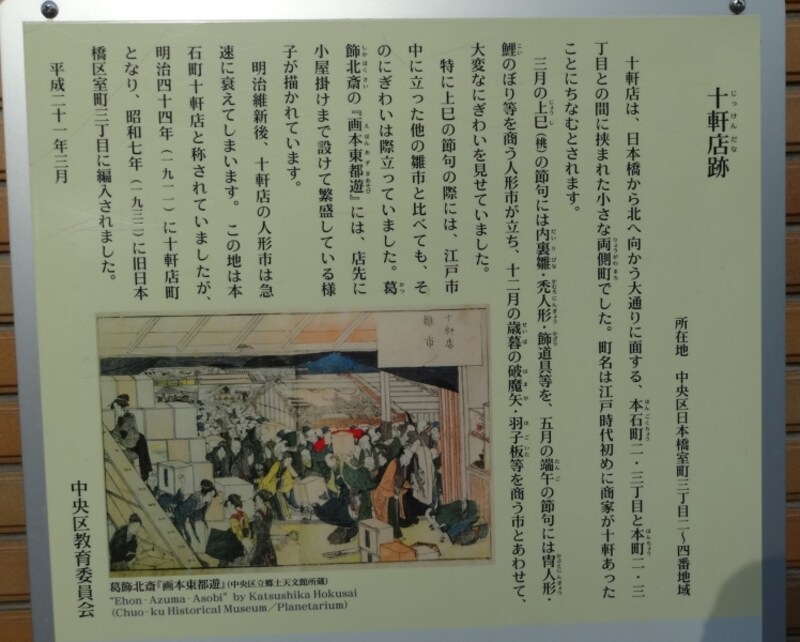 十軒店跡
じっけんだな
所在地　中央区日本橋室町三丁目二～四番地域
十軒店は、日本橋から北へ向かう大通りに面する、本石町二・三丁目と本町二・三
丁目との間に挟まれた小さな両側町でした。町名は江戸時代初めに商家が十軒あった
ことにちなむとされます。
三月の上巳（桃）の節句には内裏雛・禿人形・飾道具等を、五月の端午の節句には冑人形・
鯉のぼり等を商う人形市が立ち、十二月の歳暮の破魔矢・羽子板等を商う市とあわせて、
大変なにぎわいを見せていました。
特に上巳の節句の際には、江戸市
中に立った他の雛市と比べても、そ
のにぎわいは際立っていました。葛
飾北斎の『画本東都遊』には、店先に
小屋掛けまで設けて繁盛している様
子が描かれています。
明治維新後、十軒店の人形市は急
速に衰えてしまいます。この地は本
石町十軒店と称されていましたが、
明治四十四年（一九一一）に十軒店町
となり、昭和七年（一九三二）に旧日本
橋区室町三丁目に編入されました。
平成二十一年三月
中央区教育委員会
十軒店
雛市
葛飾北斎『画本東都遊』（中央区立郷土天文館所蔵）
"Ehon-Azuma-Asobi" by Katsushika Hokusai
(Chuo-ku Historical Museum／Planetarium)